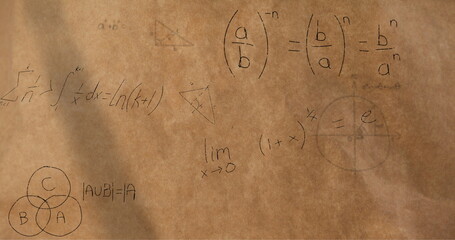 a²+b²=
(a/b)⁻ⁿ = (b/a)ⁿ = bⁿ/aⁿ
1/n > ∫ 1/x dx = Ln(k+1)
lim x→0 (1+x)^(1/x) = e
C
B A
|AUB|=|A